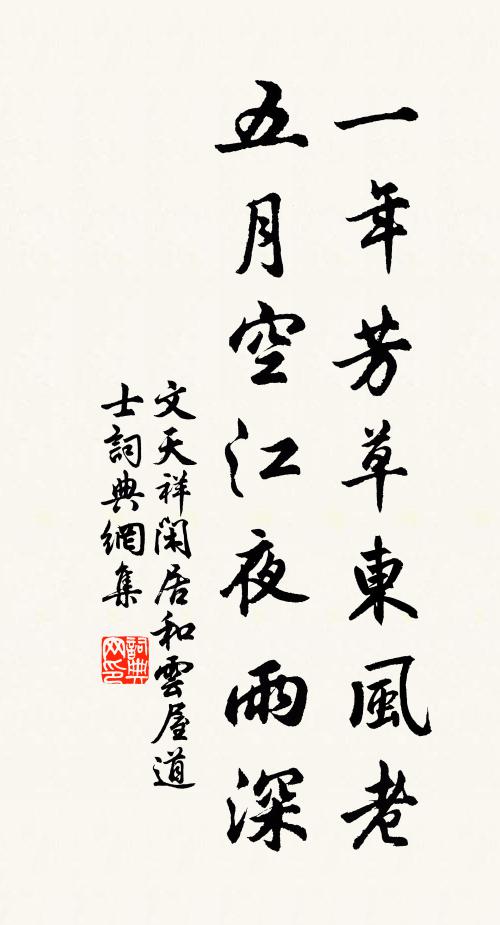 一年芳草東風老
五月空江夜雨深
文天祥閑居和雲屋道
士詞典網集
詞典
网印